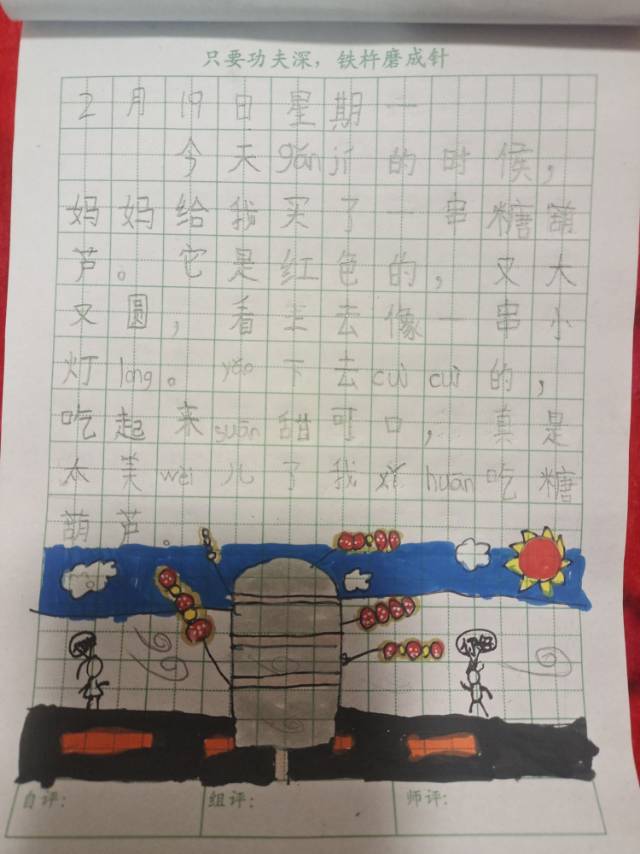 只要功夫深，铁杵磨成针
2月19日星期一
今天gǎn jí的时候，
妈妈给我买了一串糖葫
芦。它是红色的，又大
又圆，看上去像一串小
灯long。yǎo下去cuì cuì的，
吃起来suān甜可口，真是
太美wèi儿了我xǐ huān吃糖
葫芦。
自评： 组评： 师评：